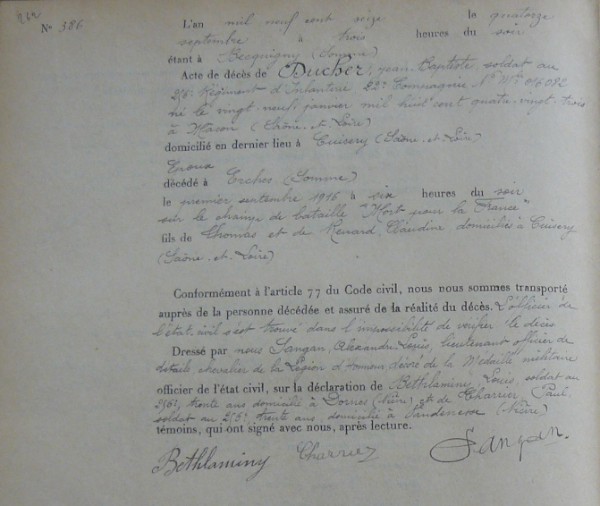 N° 586
L'an mil neuf cent seize le quatorze
septembre à trois heures du soir
étant à Becquigny (Somme)
Acte de décès de Ducher, Jean-Baptiste soldat au
Régiment d'Infanterie 22e Compagnie N° Mle
né le vingt-neuf janvier mil huit cent quatre-vingt-trois
à Macon (Saône-et-Loire)
domicilié en dernier lieu à Cuisery (Saône-et-Loire)
décédé à Erches (Somme)
le premier septembre 1916 à six heures du soir
sur le champ de bataille "Mort pour la France"
fils de Thomas et de Renard, Claudine domiciliés à Cuisery
(Saône-et-Loire)
Conformément à l'article 77 du Code civil, nous nous sommes transporté
auprès de la personne décédée et assuré de la réalité du décès. L'officier de
l'état civil s'est trouvé dans l'impossibilité de vérifier le décès
Dressé par nous Sangan, Alexandre, Louis, lieutenant officier de
détails chevalier de la Légion d'honneur décoré de la Médaille militaire
officier de l'état civil, sur la déclaration de Bethlaminy, Louis, soldat au
trente ans domicilié à Dornes (Nièvre) et de Charrier, Paul,
soldat au trente ans, domicilié à (Nièvre)
témoins, qui ont signé avec nous, après lecture.
Bethlaminy Charrier Sangan.